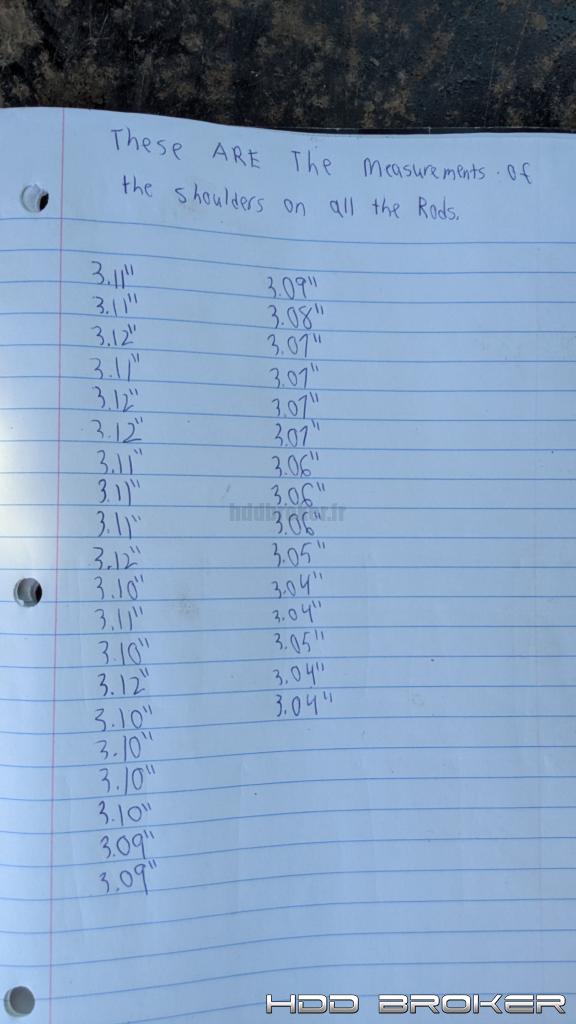 These ARE The Measurements of
the shoulders on all the Rods.
3.11"
3.11"
3.12"
3.11"
3.12"
3.12"
3.11"
3.11"
3.11"
3.12"
3.10"
3.11"
3.10"
3.12"
3.10"
3.10"
3.10"
3.10"
3.09"
3.09"
3.09"
3.08"
3.07"
3.07"
3.07"
3.07"
3.06"
3.06"
3.06"
3.05"
3.04"
3.04"
3.05"
3.04"
3.04"
hddbroker.fr
HDD BROKER